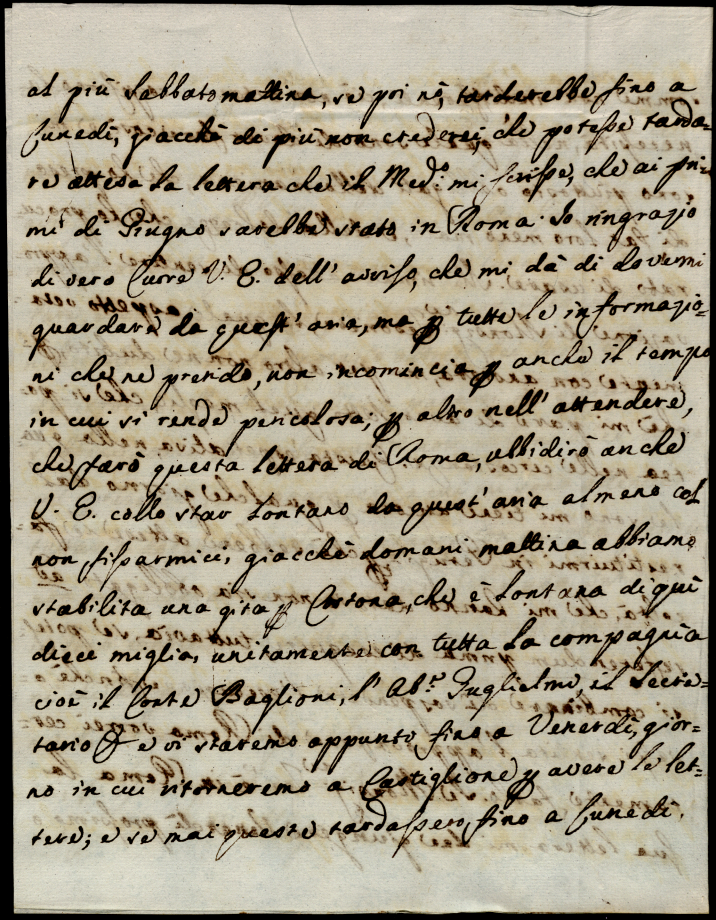 al più Sabbato mattina, se poi nò, tarderebbe fino a
Lunedì, giacchè di più non crederei, che potesse tarda-
re attesa la lettera che il Med.º mi scrisse, che ai pri-
mi di Giugno sarebbe stato in Roma. Io ringrazio
di vero Cuore V. E. dell' avviso, che mi dà di dovermi
guardare da quest' aria, ma ꝑ tutte le informazio-
ni che ne prendo, non incomincia ꝑ anche il tempo
in cui si rende pericolosa; ꝑ altro nell' attendere,
che farò questa lettera di Roma, ubbidirò anche
V. E. collo star lontano da quest' aria almeno col
non fissarmici, giacchè domani mattina abbiamo
stabilita una gita ꝑ Cortona, che è lontana di quì
dieci miglia, unitamente con tutta la compagnia
cioè il Conte Baglioni, l' Ab.e Guglielmi, il Secre-
tario & e vi staremo appunto fino a Venerdì, gior-
no in cui ritorneremo a Castiglione ꝑ avere le let-
tere; e se mai queste tardassero fino a Lunedì.